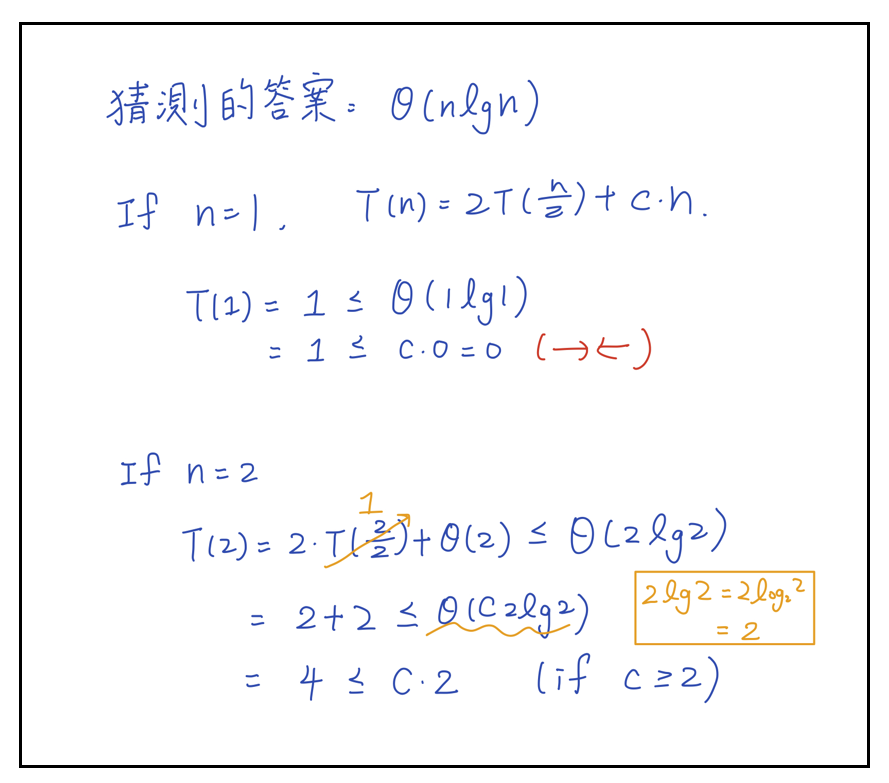 猜測的答案: θ(nlgn)
If n=1, T(n) = 2T(n/2) + c·n.
T(1) = 1 ≤ θ(1lg1)
= 1 ≤ c·0 = 0 (→←)
If n=2
1
T(2) = 2·T(2/2) + θ(2) ≤ θ(2lg2)
= 2+2 ≤ θ(C2lg2)
2lg2 = 2log₂2
= 2
= 4 ≤ C·2 (if c≥2)